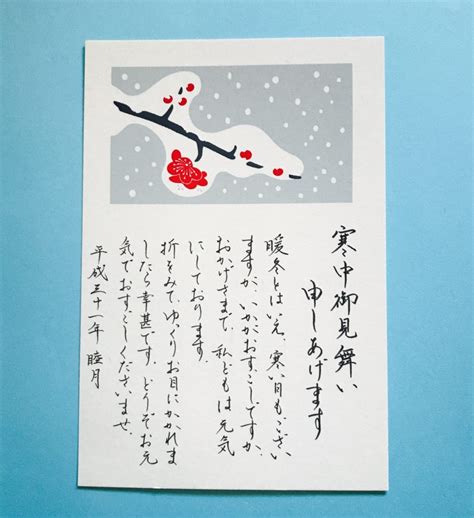 寒中御見舞い
申しあげます
暖冬とはいえ、寒い日もござい
ますが、いかがおすごしですか。
おかげさまで、私どもは元気
にしております。
折をみて、ゆっくりお目にかかれま
したら幸甚です。どうぞお元
気でおすごしくださいませ。
平成三十一年 睦月